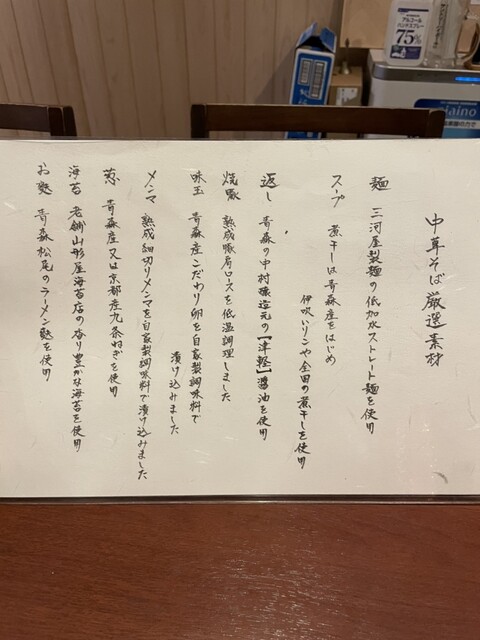 中華そば厳選素材
麺 三河屋製麺の低加水ストレート麺を使用
スープ 煮干しは青森産をはじめ
伊吹いりこや全国の煮干しを使用
返し 青森の中村醸造元の【津軽】醤油を使用
焼豚 熟成豚肩ロースを低温調理しました
味玉 青森産こだわり卵を自家製調味料で
漬け込みました
メンマ 熟成細切りメンマを自家製調味料で漬け込みました
葱 青森産又は京都産九条ねぎを使用
海苔 老舗山形屋海苔店の香り豊かな海苔を使用
お麩 青森松尾のラーメン麩を使用
アルコール
ハンドスプレー
75%